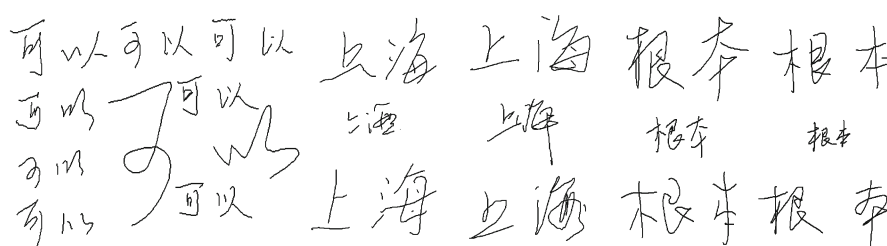 可以可以可以 上海 上海 根本 根本
可以 可以 上海 上海 根本 根本
可以 可以
可以 可以 上海 上海 根本 根本